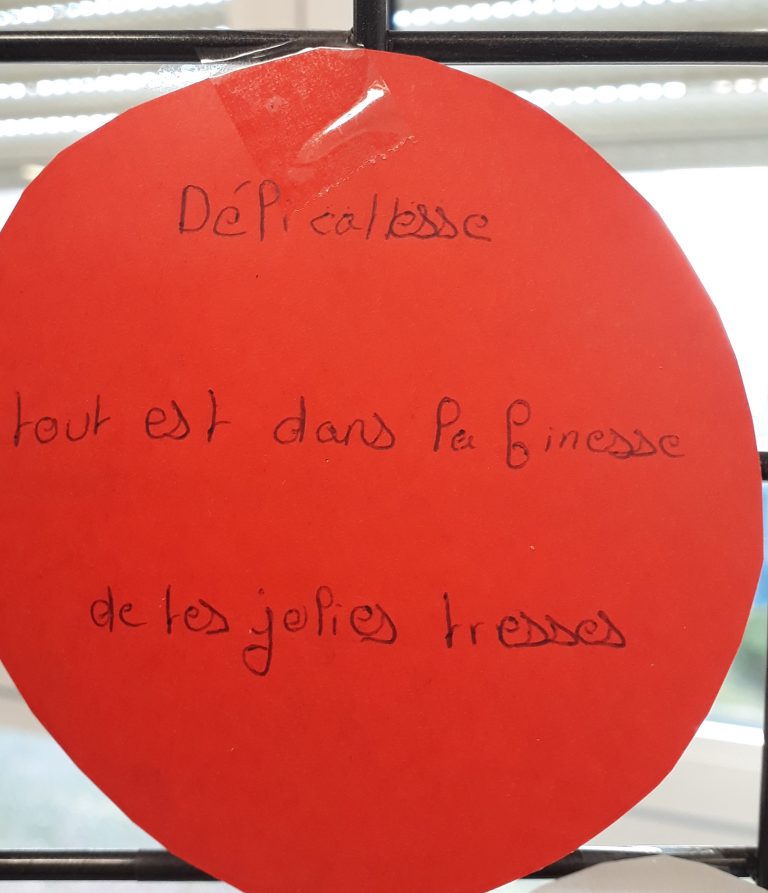 Délicatesse
tout est dans la finesse
de tes jolies tresses